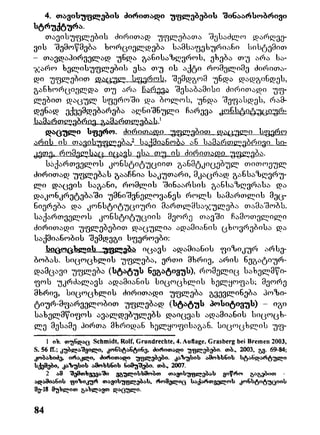 4. თავისუფლების ძირითადი უფლებების შინაარსობრივი
სტრუქტურა.
თავისუფლების ძირითად უფლებათა შესაძლო დარღვე-
ვის შემოწმება ხორციელდება სამსაფეხურიანი სისტემით
– თავდაპირველად უნდა განისაზღვროს, ეხება თუ არა სა-
ჯარო ხელისუფლების ესა თუ ის აქტი რომელიმე ძირითა-
დი უფლებით დაცულ სფეროს, შემდგომ უნდა დადგინდეს,
განხორციელდა თუ არა ჩარევა შესაბამისი ძირითადი უფ-
ლებით დაცულ სფეროში და ბოლოს, უნდა შეფასდეს, რამ-
დენად ექვემდებარება აღნიშნული ჩარევა კონსტიტუციურ-
სამართლებრივ გამართლებას.¹
დაცული სფერო. ძირითადი უფლებით დაცული სფერო
არის ის თავისუფლება² საქმიანობა ან სამართლებრივი სი-
კეთე, რომელსაც იცავს ესა თუ ის ძირითადი უფლება.
საქართველოს კონსტიტუციით განმტკიცებულ თითოეულ
ძირითად უფლებას გააჩნია საკუთარი, მკაცრად განსაზღვრუ-
ლი დაცვის საგანი, რომლის შინაარსის განსაზღვრასა და
დაკონკრეტებაში უმნიშვნელოვანეს როლს სამართლის მეც-
ნიერება და კონსტიტუციური მართლმსაჯულება თამაშობს.
საქართველოს კონსტიტუციის მეორე თავში ჩამოთვლილი
ძირითადი უფლებებით დაცულია ადამიანის ცხოვრებისა და
საქმიანობის შემდეგი სფეროები:
სიცოცხლის უფლება იცავს ადამიანის ფიზიკურ არსე-
ბობას. სიცოცხლის უფლება, ერთი მხრივ, არის ნეგატიურ-
დამცავი უფლება (სტატუს ნეგატივუს), რომელიც სახელმწი-
ფოს უკრძალავს ადამიანის სიცოცხლის ხელყოფას; მეორე
მხრივ, სიცოცხლის ძირითადი უფლება გვევლინება პოზი-
ტიურ-მფარველობით უფლებად (სტატუს პოსიტივუს) – იგი
სახელმწიფოს ავალდებულებს დაიცვას ადამიანის სიცოცხ-
ლე მესამე პირთა მხრიდან ხელყოფისაგან. სიცოცხლის უფ-
1 იხ. თუნდაც Schmidt, Rolf, Grundrechte, 4. Auflage, Grasberg bei Bremen 2003,
S. 56 ff.; კუბლაშვილი, კონსტანტინე, ძირითადი უფლებები. თბ., 2003, გვ. 69-84;
კობახიძე, ირაკლი, ძირითადი უფლებები. კაზუსის ამოხსნის სტანდარტული
სქემები, კაზუსის ამოხსნის ნიმუშები. თბ., 2007.
2 ამ შემთხვევაში ვგულისხმობთ თავისუფლებას ვიწრო გაგებით -
ადამიანის ფიზიკურ თავისუფლებას, რომელიც საქართველოს კონსტიტუციის
მე-18 მუხლით გახლავთ დაცული.
84